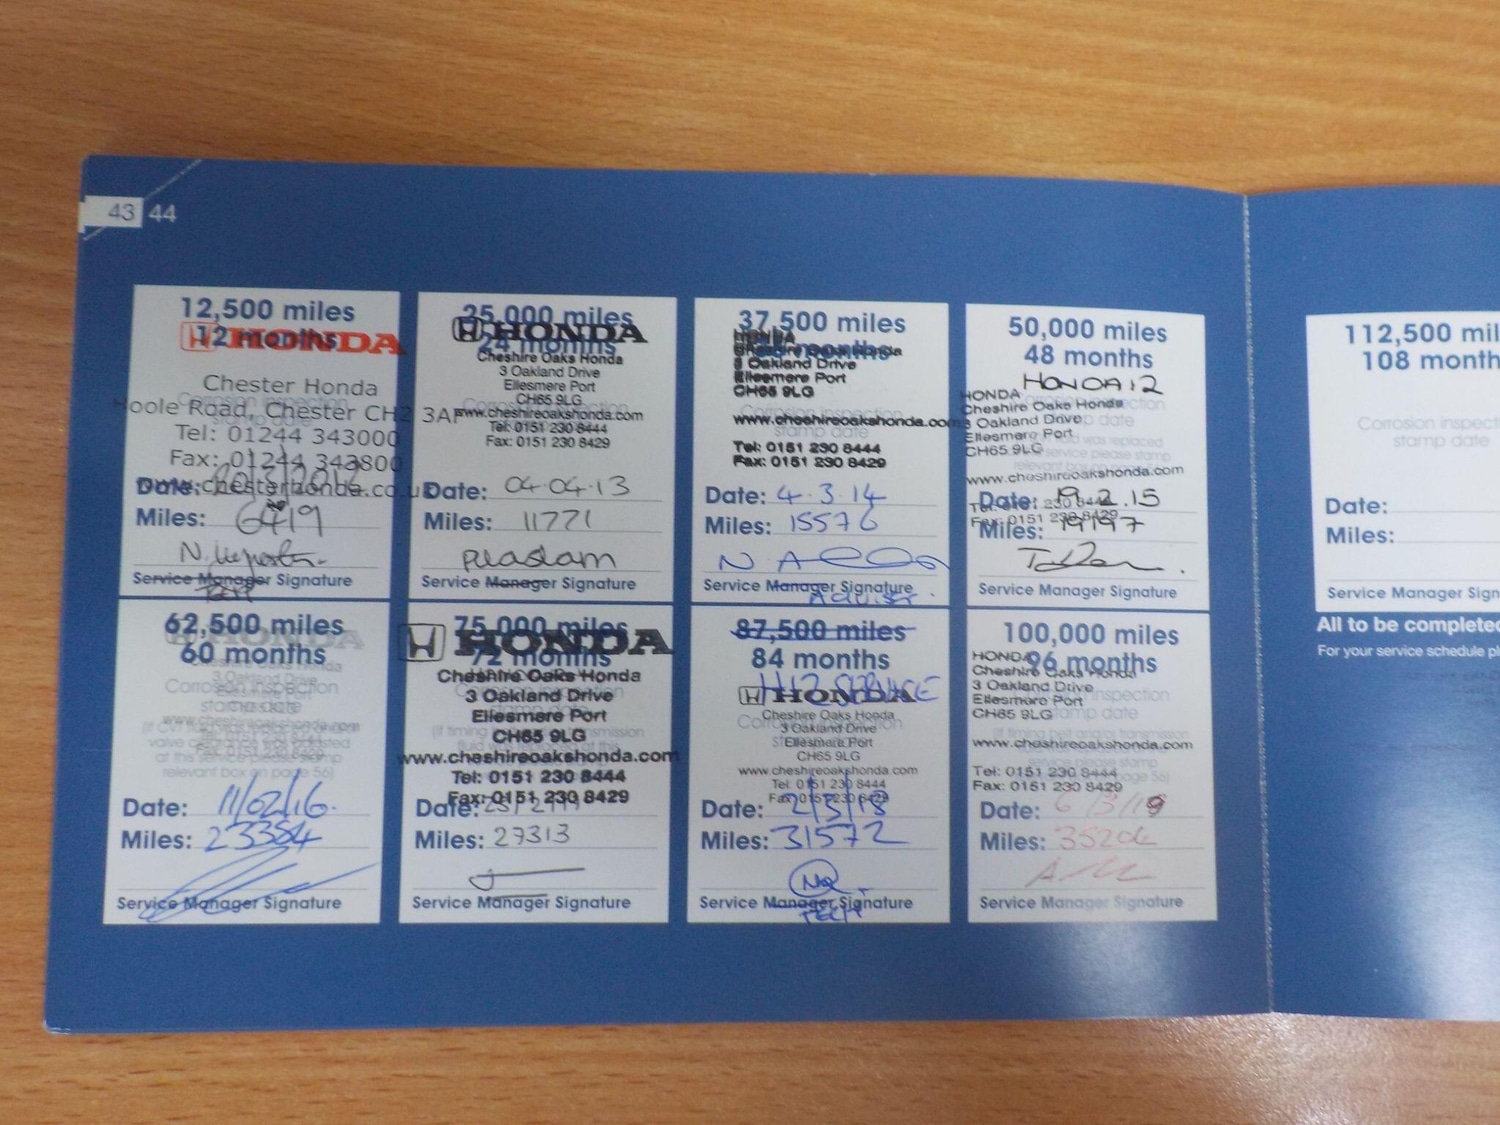 43 44
12,500 miles
12 months
HONDA
Chester Honda
Hoole Road, Chester CH2 3AP
Tel: 01244 343000
Fax: 01244 343800
www.chesterhonda.co.uk
Date:
Miles: 6419
Service Manager Signature
25,000 miles
24 months
HONDA
Cheshire Oaks Honda
3 Oakland Drive
Ellesmere Port
CH65 9LG
www.cheshireoakshonda.com
Tel: 0151 230 8444
Fax: 0151 230 8429
Date: 04.04.13
Miles: 11771
Service Manager Signature
37,500 miles
months
HONDA
Cheshire Oaks Honda
3 Oakland Drive
Ellesmere Port
CH65 9LG
www.cheshireoakshonda.com
Corrosion inspection
stamp date
Tel: 0151 230 8444
Fax: 0151 230 8429
Date: 4.3.14
Miles: 15576
Service Manager Signature
50,000 miles
48 months
HONDA 12
HONDA
Cheshire Oaks Honda
3 Oakland Drive
Ellesmere Port
CH65 9LG
www.cheshireoakshonda.com
Tel: 0151 230 8444
Fax: 0151 230 8429
Date: 19.2.15
Miles: 19197
Service Manager Signature
62,500 miles
60 months
Corrosion inspection
stamp date
Date: 11/02/16.
Miles: 23384
Service Manager Signature
75,000 miles
72 months
HONDA
Cheshire Oaks Honda
3 Oakland Drive
Ellesmere Port
CH65 9LG
www.cheshireoakshonda.com
Tel: 0151 230 8444
Fax: 0151 230 8429
Date:
Miles: 27313
Service Manager Signature
87,500 miles
84 months
HONDA
Cheshire Oaks Honda
3 Oakland Drive
Ellesmere Port
CH65 9LG
www.cheshireoakshonda.com
Tel: 0151 230 8444
Fax: 0151 230 8429
Date: 2/3/18
Miles: 31572
Service Manager Signature
TECH
100,000 miles
96 months
HONDA
Cheshire Oaks Honda
3 Oakland Drive
Ellesmere Port
CH65 9LG
www.cheshireoakshonda.com
Tel: 0151 230 8444
Fax: 0151 230 8429
Date: 6/3/19
Miles:
Service Manager Signature
112,500 mil
108 month
Corrosion inspecti
stamp date
Date:
Miles:
Service Manager Sign
All to be completed
For your service schedule pl